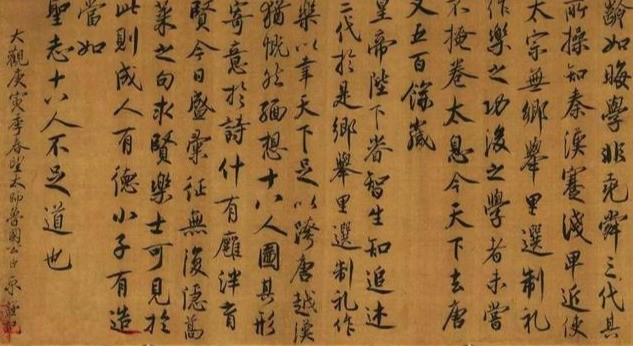 齡如晦學非堯舜三代其
所操知秦漢蹇淺卑近使
太宗無鄉舉里選制禮
作樂之功後之學者未嘗
不掩卷太息今天下去唐
又五百餘歲
皇帝陛下睿智生知追述
三代於是鄉舉里選制礼作
樂以幸天下足以跨唐越漢
猶慨然緬想十八人圖其形
寄意於詩什有廱泮育
賢今日盛彙征無復隱蒿
萊之句求賢樂士可見於
此則成人有德小子有造
當如
聖志十八人不足道也
大觀庚寅季春望太師魯國公臣京謹記